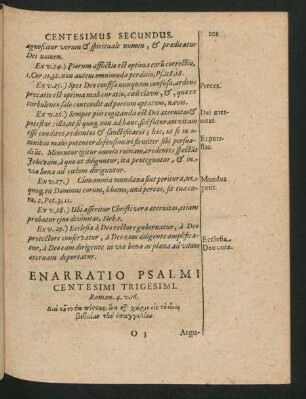 CENTESIMUS SECUNDUS. 101
agnoscatur verum & spirituale numen, & prædicatur
Dei nomen.
Ex v. 24.) Piorum afflictio est optima eorũ correctio,
1. Cor. 11, 32. non autem omnimoda perditio, Ps. 118, 18.
Ex v. 25.) Spes Deo confisa nunquam confusa, ardens
precatio est optima mali curatio, calx clavæ, &
turbulento salo contendit ad portum optatum, navis.
Ex v. 26.) Semper pio cogitanda est Dei æternitas &
potestas: illa,
esse condere, redemtos & sanctificatos: hæc, ut se in omnibus malis potenter defensum iri firmiter sibi persuadeat.
Jehovam, à quo ut diliguntur, ita proteguntur, &
luna ad ralum diriguntur.
Ex v. 27.) Cum omnia mundana sint peritura,
quoq; tu Dominus eorum, ô homo, unà pereas,
2. Pet. 3, 11.
Ex v. 28.) Ubi asseritur Christi vera æternitas, etiam
probatur ejus divinitas, Heb. 1.
Ex v. 29.) Ecclesia à Deo rectore gubernatur, à Deo
protectore conservatur, à Deo eam diligente amplificatur, à Deo eam dirigente in via bona ac plana ad vitam
æternam deportatur.
Preces.
Dei æternitas.
Et potestas.
Mundus perit.
Ecclesia Deo curæ.
ENARRATIO PSALMI
CENTESIMI TRIGESIMI.
Roman. 4. v. 16.
Διὰ τοῦτο ἐκ πίστεως, ἵνα κτ̃ χάριν εἰς τὸ εἶναι
βεβαίαν τὴν ἐπαγγελίαν.
O 3 Argu-